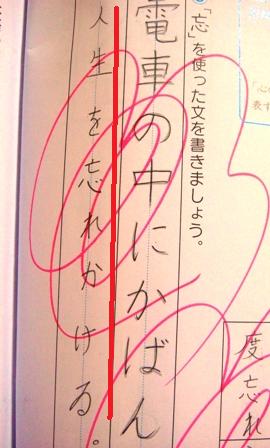 「忘」を使った文を書きましょう。
電車の中にかばん
人生を忘れかける。
度忘れ